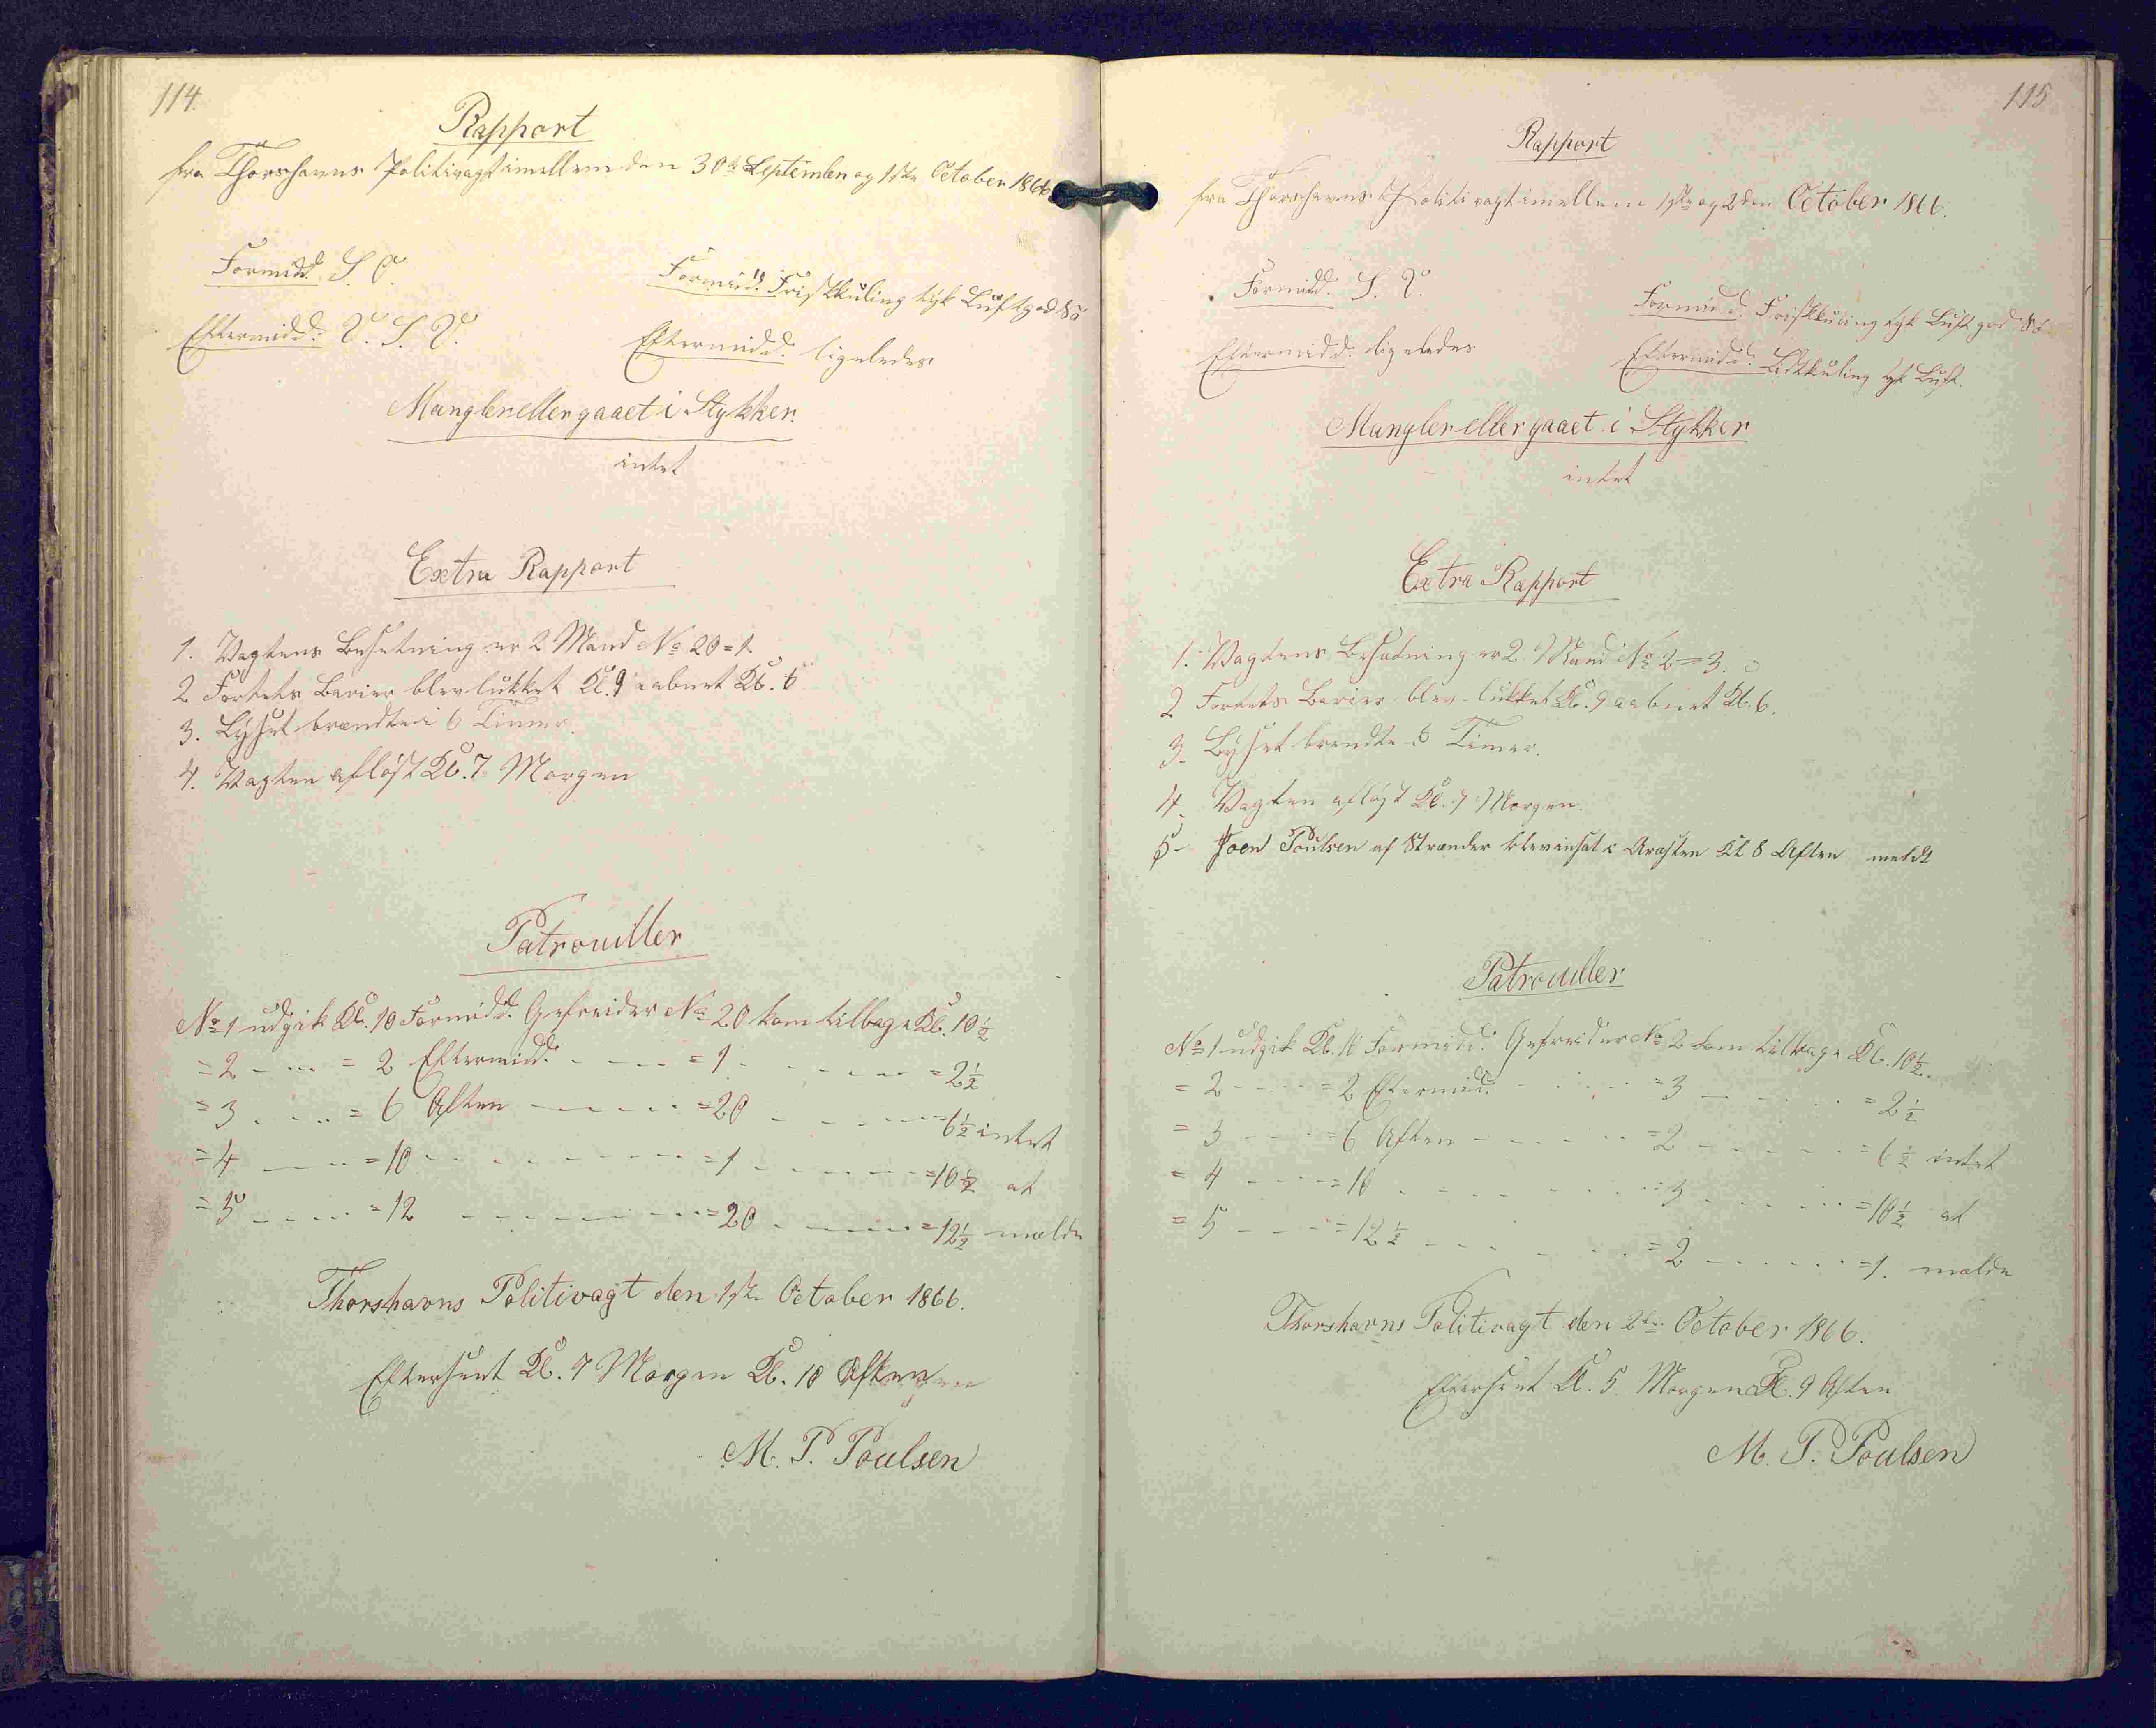 114.
Rapport
fra Thorshavns Politivagt imellem den 30te September og 1ste October 1866
Formidd. S. O.
Formidd. Frisk Kuling tyk Luft god Sö
Eftermidd. V. S. V.
Eftermidd. ligeledes
Mangler eller gaaet i Stykker.
intet
Extra Rapport
1. Vagtens Besetning er 2 Mand No 20 = 1.
2 Fortets Barier blev lukket Kl. 9 aabnet Kl. 6
3. Lyset brændte i 6 Timer.
4. Vagten aflöst Kl. 7 Morgen
Patrouiller
No 1 udgik Kl. 10 Formidd. Gefreider No 20 kom tilbage Kl. 10½
= 2 - - - = 2 Eftermidd. - - - = 1 - - - - - = 2½
= 3 - - - = 6 Aften - - - - = 20 - - - - - = 6½ intet
= 4 - - - = 10 - - - - - - - = 1 - - - - - = 10½ at
= 5 - - - = 12 - - - - - - - = 20 - - - - = 12½ melde
Thorshavns Politivagt den 1ste October 1866.
Efterseet Kl. 7 Morgen Kl. 10 Aften
M. P. Poulsen
115
Rapport
fra Thorshavns Politivagt imellem 1ste og 2den October 1866.
Formidd. S. V.
Formidd. Frisk Kuling tyk Luft god Sö
Eftermidd. ligeledes
Eftermidd. Lidt Kuling tyk Luft.
Mangler eller gaaet i Stykker
intet
Extra Rapport
1. Vagtens Besætning er 2 Mand No 2 = 3.
2 Fortets Barier blev lukket Kl. 9 aabnet Kl. 6.
3. Lyset brendte 6 Timer.
4. Vagten aflöst Kl. 7 Morgen.
5 - Joen Poulsen af Strænder blev insat i Aræsten Kl 8 Aften meldt
Patrouiller
No 1 udgik Kl. 10 Formidd. Gefreider No 2 kom tilbage Kl. 10½.
= 2 - - - = 2 Eftermidd. - - - - = 3 - - - - - = 2½
= 3 - - - = 6 Aften - - - - = 2 - - - - - = 6½ intet
= 4 - - - = 10 - - - - - - = 3 - - - - - = 10½ at
= 5 - - - = 12½ - - - - - = 2 - - - - - = 1. melde
Thorshavns Politivagt den 2den October 1866.
Efterseet Kl. 5. Morgen Kl. 9 Aften
M. P. Poulsen